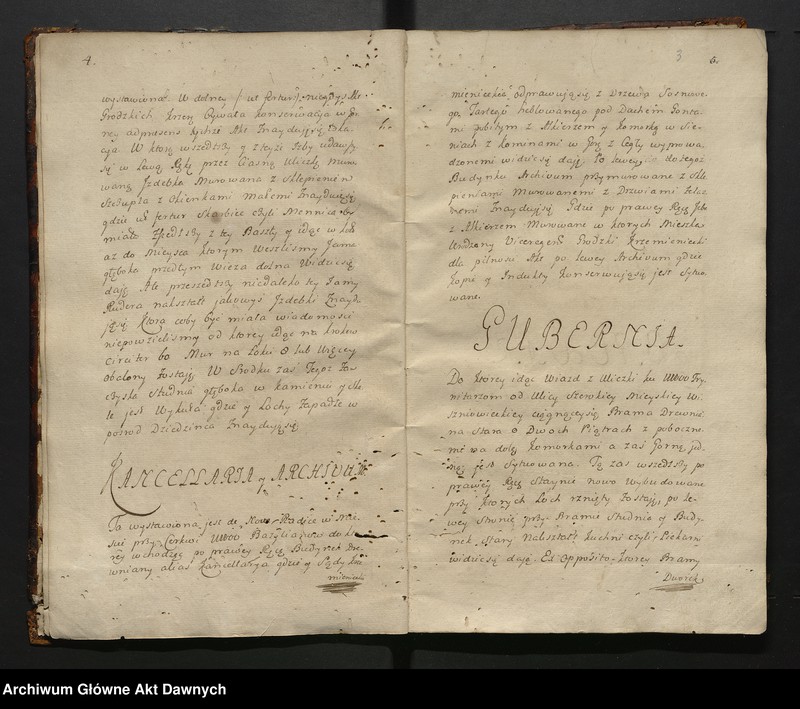 4.
wystawiona. W dolney / ut fertur / niegdys Akt
Grodzkich Krzem
teraz Izbie Akt Znayduiąsię
W ktorą wszedłszy y zteyże Izby udawszy
się w Lewą Rękę przez Ciasną Uliczkę Muro
waną Izdebka Murowana z Sklepieniem
Szczupła z Okienkami Małemi Znayduiesię
gdzie ut fertur Skarbiec czyli Mennica by
miała Zszedłszy z tey Baszty y idąc w koło
aż do Mieysca ktorym Weszlismy Jama
głęboka przedtym Wieza dolna Widziec się
daią. Ale przeszedłszy niedaleko tey Jamy
Rudera nakształt jakowyś Izdebki Znayd
ktora coby być miała wiadomości
niepowzielismy od ktorey idąc na krokow
Circiter 60 Mur na Łokci 8 lub Więcey
obalony Zostaię W Srodku zaś Tegoż Za
Studnia głęboka w kamieniu y Ska
le jest Wykuta gdzie y Lochy Zapadłe w
posrod Dziedzinca Znayduiąsię
KANCELLARIA y ARCHIVUM
Ta wystawiona jest de Novo Radice w Mie
scie przy Cerkwi WWOO Bazylianow do kto
rey wchodząc po prawey Ręce Budynek Dre
wniany alias Kancellarya gdzie y Sądy Krze
mienieckie
3 5.
mienieckie odprawuiąsię z Drzewa Sosnowe
go Tartego heblowanego pod Dachem Gonta
mi pobitym z Alkierzem y Komorką w Sie
niach z kominami w Gorę z Cegły wyprowa
dzonemi widziec się daią. Po lewey do tegoż
Budynku Archivum przymurowane z Skle
pieniami Murowanemi z Drzwiami Żelaz
nemi Znayduiesię Gdzie po prawey Ręce Izba
z Alkierzem Murowane w ktorych Mieszka
Urodzony Viceregens Grodzki Krzemieniecki
dla pilności Akt po lewey Archivum gdzie
kopie y Indukty Konserwuiąsię jest Sytuo
wane.
GUBERNIA.
Do ktorey idąc Wiazd z Uliczki ku WWOO Try
nitarzom od Ulicy Szerokiey Mieyskiey Wi
szniowieckiey ciągnącey się Brama Drewnia
na Stara o Dwoch Piątrach z poboczne
mi dwa dolę Komorkami a zaś Gorną jed
ną jest Sytuowana. Tę zaś wszedłszy po
prawey Ręce Staynie nowo Wybudowane
przy ktorych Loch rznięty Zostaię, po le
wey Stronie przy Bramie Studnia y Budy
nek Stary Nakształt Kuchni czyli Piekarni
widziec się daią. Ex Opposito ktorey Bramy
Dworek
Archiwum Główne Akt Dawnych